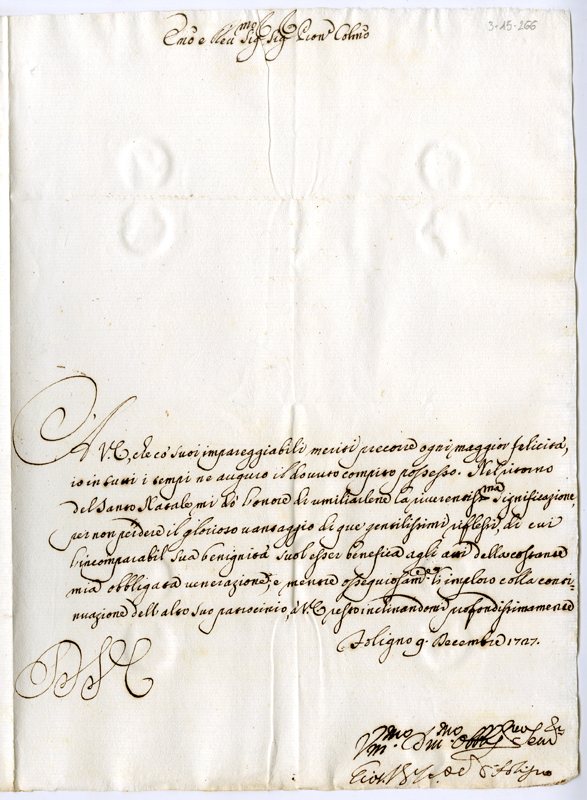 3-15-266
Emo e Reu.mo Sig.r Sig.r Pron Colmo
A VE, che co' suoi impareggiabili meriti precorre ogni maggior felicità,
io in tutti i tempi ne auguro il dovuto compito possesso. Nel ritorno
del Santo Natale, mi dò l'onore di umiliarlene la riverentiss.ma significazione,
per non perdere il glorioso vantaggio di que' gentilissimi riflessi, di cui
l'incomparabil Sua benignità suol esser benefica agli atti della costante
mia obbligata venerazione; e mentre ossequiosam.e gl'imploro colla conti-
nuazione dell'alto suo patrocinio, à VE resto inclinandomi profondissimamente
Foligno 9. Decembre 1727.
Vm.mo Diu.mo